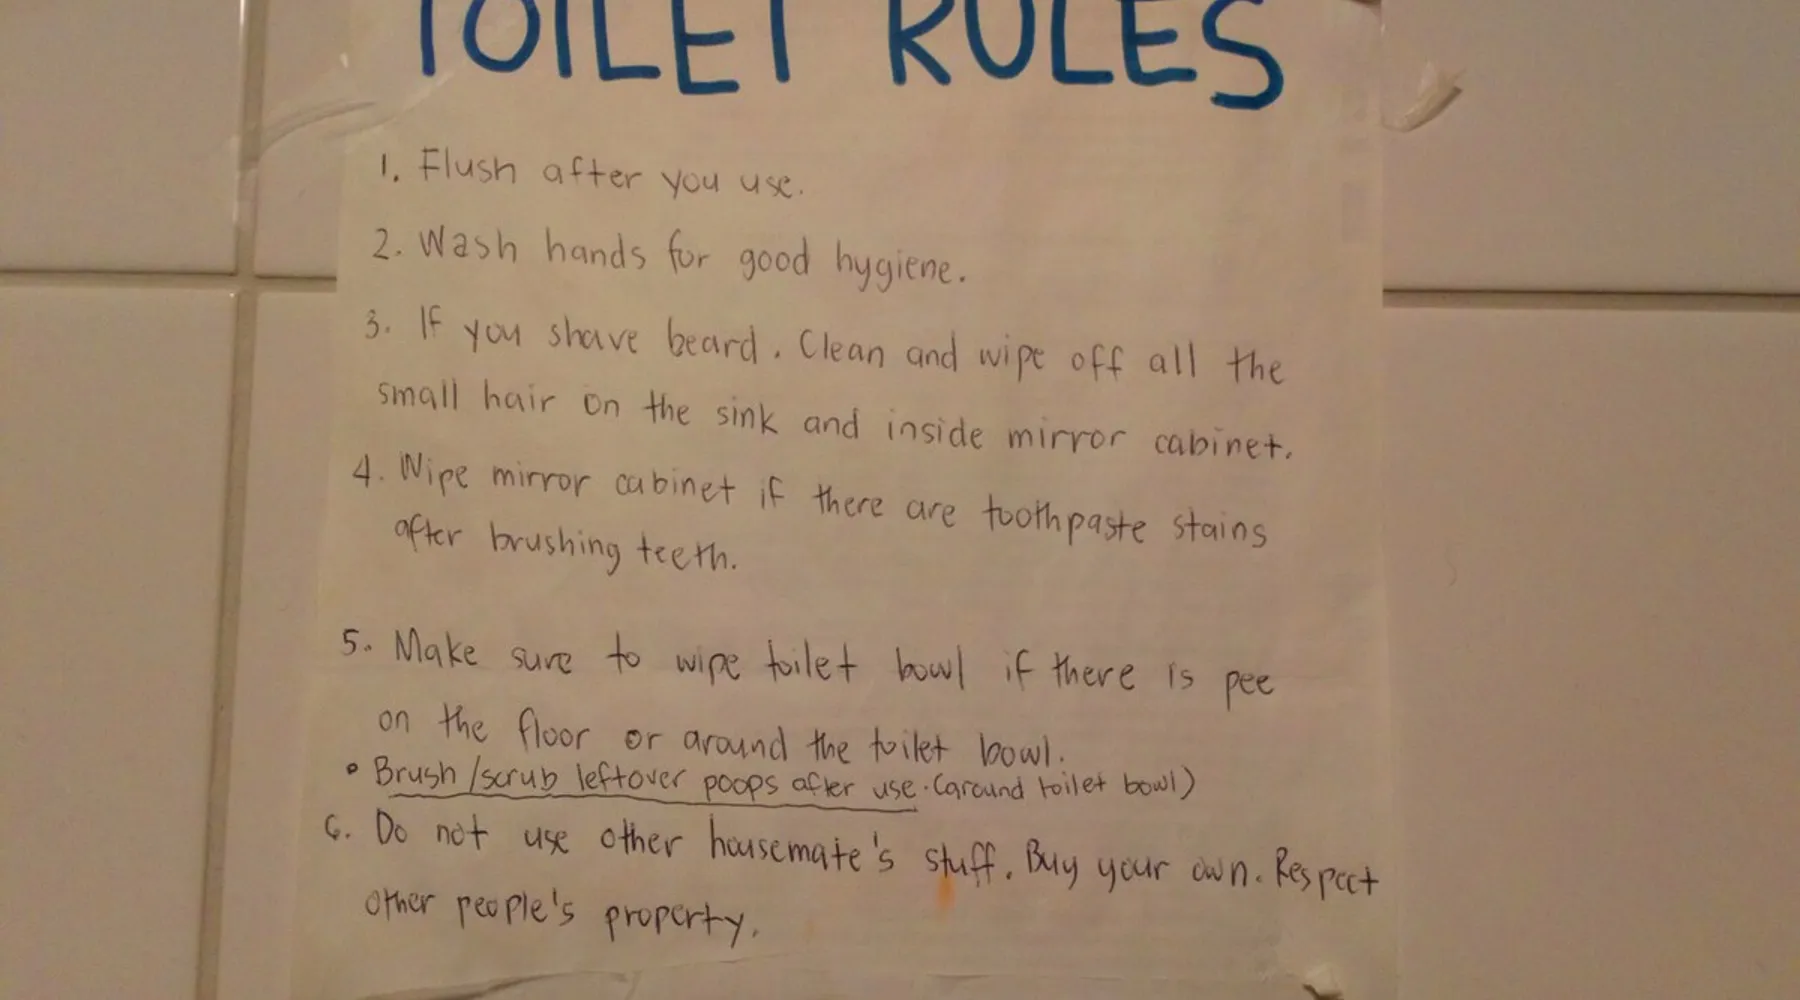 TOILET RULES
1. Flush after you use.
2. Wash hands for good hygiene.
3. If you shave beard. Clean and wipe off all the
small hair on the sink and inside mirror cabinet.
4. Wipe mirror cabinet if there are toothpaste stains
after brushing teeth.
5. Make sure to wipe toilet bowl if there is pee
on the floor or around the toilet bowl.
• Brush/scrub leftover poops after use. (around toilet bowl)
6. Do not use other housemate's stuff. Buy your own. Respect
other people's property.